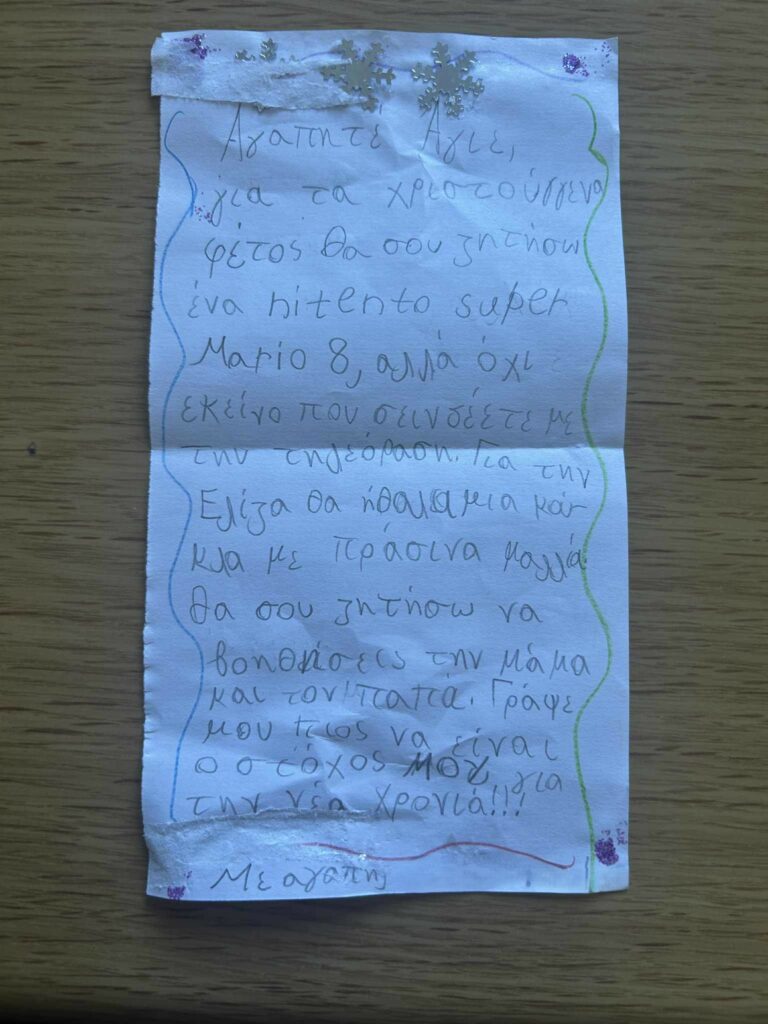 Αγαπητέ Άγιε,
για τα χριστούγγενα
φέτος θα σου ζητήσω
ένα nitento super
Mario 8, αλλά όχι
εκείνο που σεινδέετε με
την τηλεόραση. Για την
Ελίζα θα ήθαλα μια κάγ
κλα με πράσινα μαλλιά
θα σου ζητήσω να
βοηθήσεις την μάμα
και τον παπά. Γράψε
μου πιος να είναι
ο στόχος μου για
την νέα χρονιά!!!
Με αγαπη